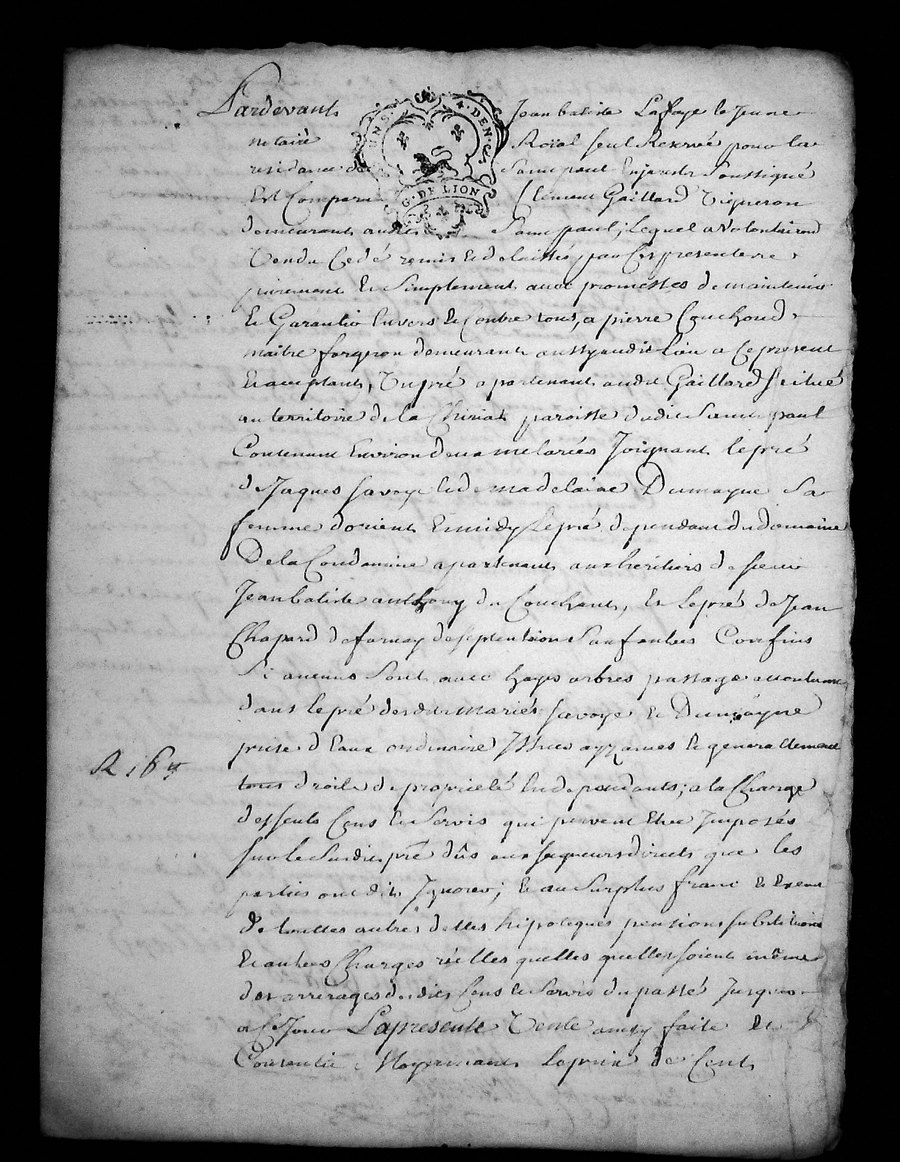 Pardevant Jean batiste Lafaye le Jeune
notaire Roïal seul Reservé pour la
residance de Saint paul En Jarest Soussigné
Est Comparu Clément Gaillard Vigneron
demeurant audit Saint paul, lequel a Volontairemt
Vendu Cedé remis et delaissé par Ces presentes
purement Et Simplement avec promesses de maintenir
Et Garantir Envers Et Contre tous, a pierre Couchoud
maitre forgeron demeurant aussy audit lieu a Ce present
Et acceptant, Un pré apartenant audit Gaillard Scitué
au territoire de la Chiriat paroisse dudit Saint paul
Contenant Environ deux metariés Joignant le pré
de Jaques Savoye et de madelaine Dumayne Sa
femme d'orient Et midy, le pré dependant du Domaine
De la Condamine apartenant aux heritiers de sieur
Jean batiste anthony du Couchant, Et le pré de Jean
Chapard de farnay de Septentrion Sauf autres Confins
Si aucuns Sont avec hayes arbres passage
dans le pré desdits mariés Savoye Et Dumayne
prise d'Eaux ordinaire Issues ayzances Et generallement
tous droits de proprieté En dependants; a la Charge
des Cens Et Servis qui peuvent Etre Imposés
Sur le Susdit pré dûs aux seigneurs directs que les
R 16
parties ont dit Ignorer; Et au Surplus franc Et Exempt
de touttes autres dettes hipoteques pensions substitutions
Et autres Charges réelles quelles quelles soient même
des arrerages desdits Cens Et Servis du passé Jusques
a Ce Jour La presente Vente ainsy faite Et
Consentie Moyennant le prix de Cent
UNS. 4. DEN.
G. DE LION